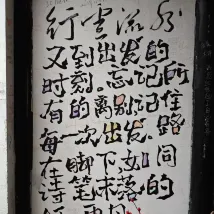 行雲流水
又到出发的
时刻.忘记所
有的离别记住
每一次出发.路
在脚下,如同
诗笔未落的